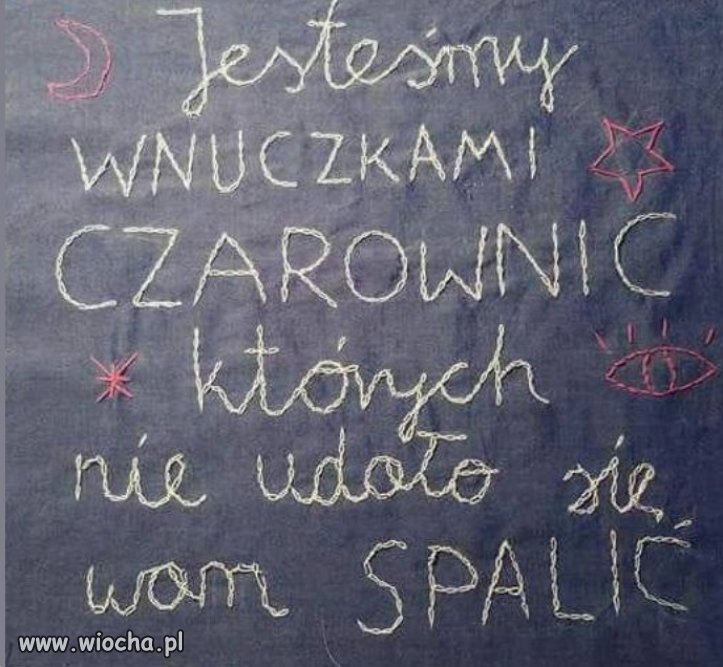 Jesteśmy
WNUCZKAMI
CZAROWNIC
których
nie udało się
wam SPALIĆ
www.wiocha.pl